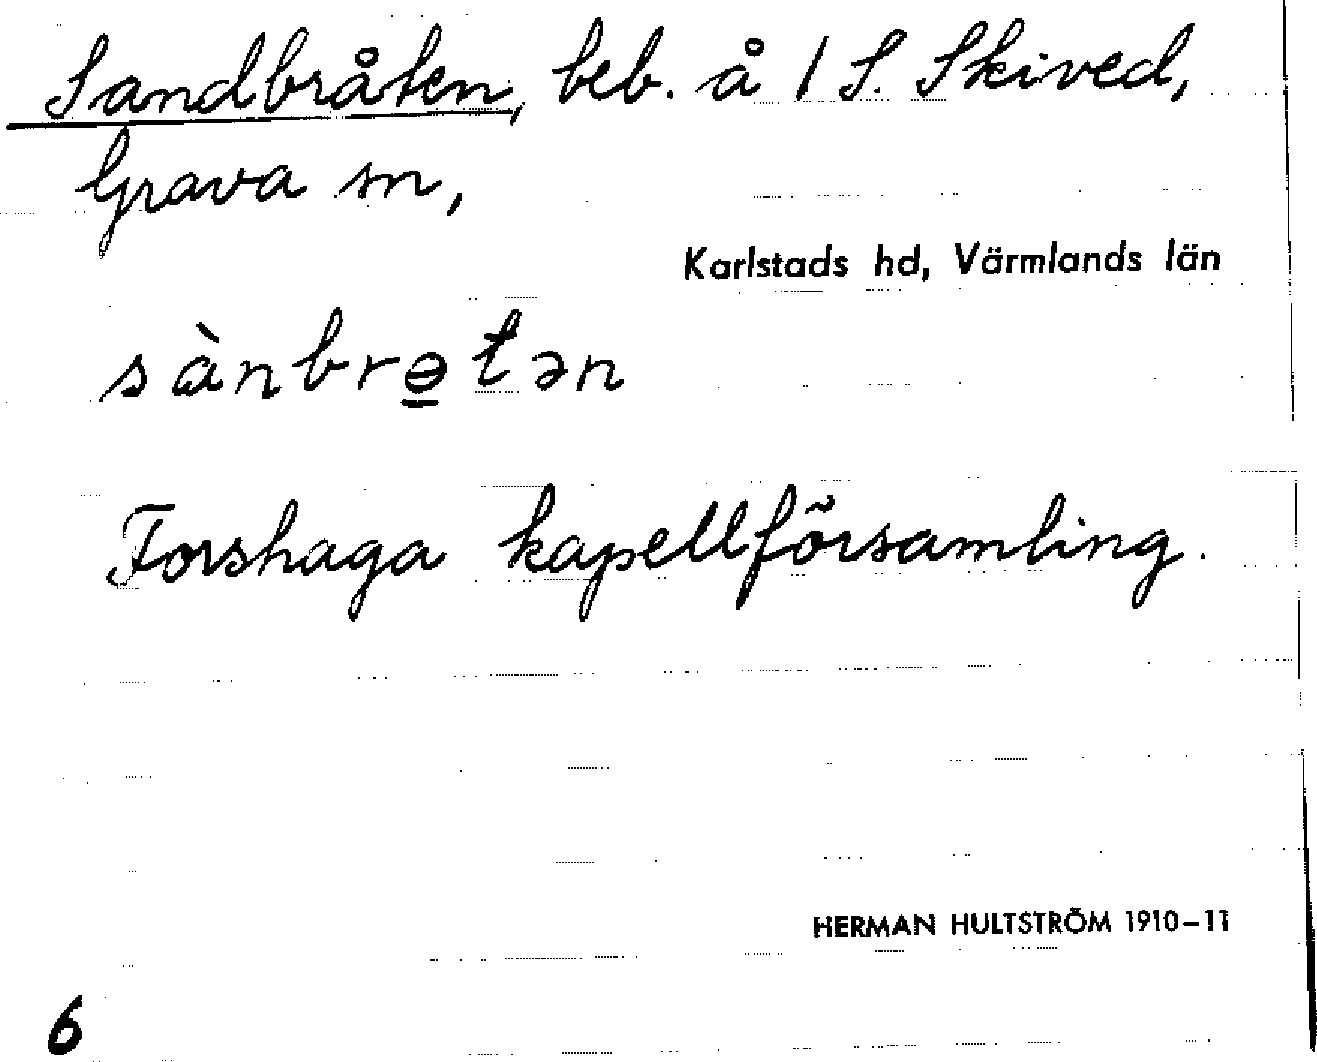 Sandbråten, beb. å 1 S. Skived,
Grava sn,
Karlstads hd, Värmlands län
sànbrɵ̲tən
Forshaga kapellförsamling.
HERMAN HULTSTRÖM 1910–11
6